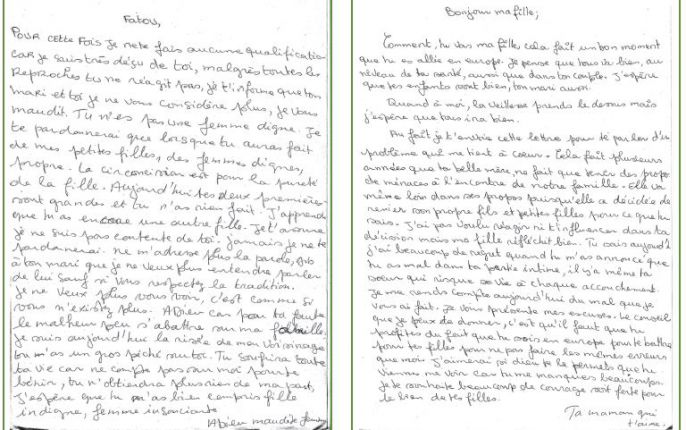 Fatou,
POUR CETTE FOIS Je ne te fais aucune qualification
car je suis très déçu de toi, malgrès toutes les
Reproches tu ne réagit pas, je t'informe que ton
mari et toi je ne vous considère plus, je vous
maudit. Tu n'es pas une femme digne. Je
te pardonnerai que lorsque tu auras fait
de mes petites filles, des femmes dignes,
propre. La circoncision est pour la pureté
de la fille. Aujourd'hui tes deux premières
sont grandes et tu n'as rien fait. J'apprend
que tu as encore une autre fille. Je t'avoue
je ne suis pas contente de toi. jamais je ne te
pardonerai. ne m'adresse plus la parole, dis
à ton mari que je ne veux plus entendre parler
de lui sauf si vous respectez la tradition.
Je ne veux plus vous voir, c'est comme si
vous n'existez plus. Adieu car pour ta faute
le malheur peu s'abattre sur ma famille.
Je suis aujourd'hui la risée de mon voisinage
tu m'as un gros péché sur toi. Tu soufrira toute
ta vie car ne compte pas sur moi pour te
bénir, tu n'obtiendra plus rien de ma part,
J'espère que tu m'as bien compris fille
indigne, femme insouciante
Adieu maudite
Bonjour ma fille,
Comment, tu vas ma fille cela fait un bon moment
que tu es allée en europe. Je pense que tous va bien, au
niveau de ta santé, aussi que dans ton couple. J'espère
que tes enfants sont bien, ton mari aussi.
Quand à moi, la veillesse prends le dessus mais
j'espère que tous ira bien.
Au fait je t'envoie cette lettre pour te parler d'un
problème qui me tient à cœur. Cela fait plusieurs
années que ta belle mère, ne fait que tenir des propos
de menaces à l'encontre de notre famille. Elle va
même loin dans ses propos puisqu'elle a décidée de
renier son propre fils et petites filles pour ce que tu
sais. J'ai pas voulu réagir ni t'influencer dans ta
décision mais ma fille réfléchit bien. Tu sais aujourd'
j'ai beaucoup de regret quand tu m'as annoncé que
tu as mal dans ta partie intime, il y'a même ta
soeur qui risque sa vie à chaque accouchement.
Je me rends compte aujourd'hui du mal que je
vous ai fait. Je vous présente mes excuses. Le conseil
que je peux te donner, c'est qu'il faut que tu
profites du fait que tu sois en europe pour te battre
pour tes filles pour ne pas faire les mêmes erreurs
que moi. J'aimerai, si dieu te le permets que tu
viennes me voir car tu me manques beaucoup.
Je te souhaite beaucoup de courage soit forte pour
le bien de tes filles.
Ta maman qui
t'aime.